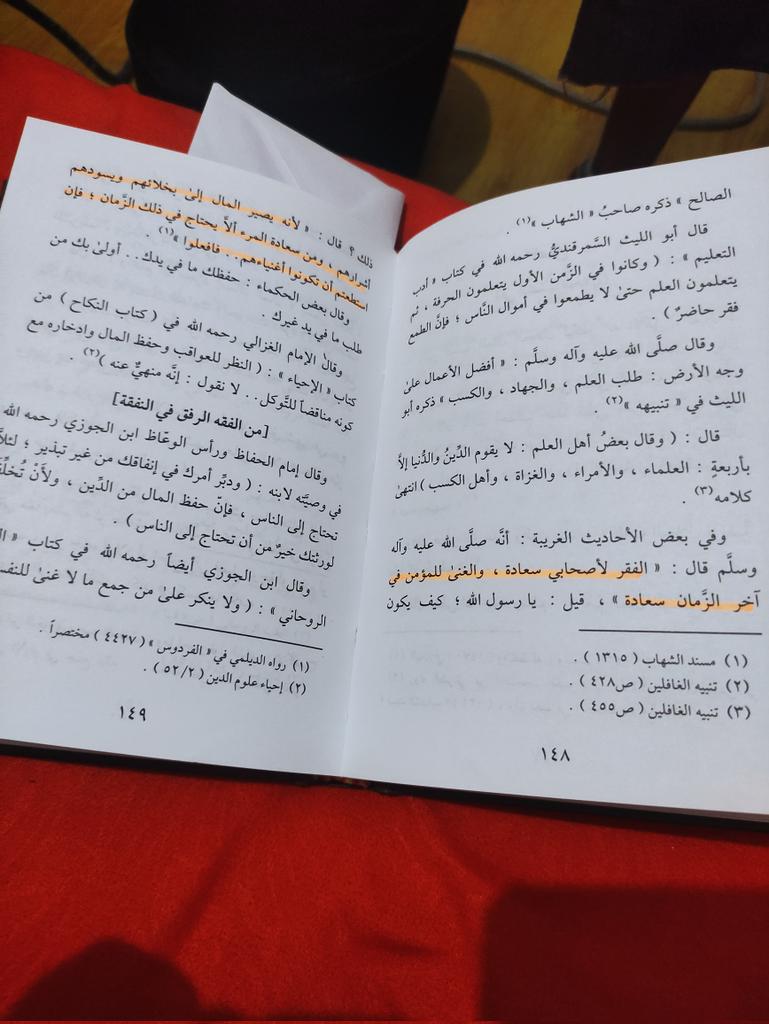 الصالح » ذكره صاحبُ « الشهاب »(١) .
قال أبو الليث السَّمرقنديُّ رحمه الله في كتاب « أدب
التعليم » : ( وكانوا في الزَّمن الأول يتعلمون الحرفة ، ثم
يتعلمون العلم حتىٰ لا يطمعوا في أموال النَّاس ؛ فإنَّ الطمع
فقر حاضرٌ ) .
وقال صلَّى الله عليه وآله وسلَّم : « أفضل الأعمال علىٰ
وجه الأرض : طلب العلم ، والجهاد ، والكسب » ذكره أبو
الليث في « تنبيهه »(٢) .
قال : ( وقال بعضُ أهل العلم : لا يقوم الدِّينُ والدُّنيا إلَّا
بأربعةٍ : العلماء ، والأمراء ، والغزاة ، وأهل الكسب ) انتهىٰ
كلامه(٣) .
وفي بعض الأحاديث الغريبة : أنَّه صلَّى الله عليه وآله
وسلَّم قال : « الفقر لأصحابي سعادة ، والغنىٰ للمؤمن في
آخر الزَّمان سعادة » ، قيل : يا رسول الله ؛ كيف يكون
(١) مسند الشهاب ( ١٣١٥ ) .
(٢) تنبيه الغافلين ( ص٤٢٨ ) .
(٣) تنبيه الغافلين ( ص٤٥٥ ) .
١٤٨
ذلك ؟ قال : « لأنه يصير المال إلىٰ بخلائهم ويسودهم
أشرارهم ، ومن سعادة المرء ألاَّ يحتاج في ذلك الزَّمان ؛ فإن
استطعتم أن تكونوا أغنياءهم . . فافعلوا »(١) .
وقال بعض الحكماء : حفظك ما في يدك . . أولىٰ بك من
طلب ما في يد غيرك .
وقال الإمام الغزالي رحمه الله في ( كتاب النكاح ) من
كتاب « الإحياء » : ( النظر للعواقب وحفظ المال وادخاره مع
كونه مناقضاً للتَّوكل . . لا نقول : إنَّه منهيٌّ عنه )(٢) .
[من الفقه الرفق في النفقة]
وقال إمام الحفاظ ورأس الوعّاظ ابن الجوزي رحمه الله
في وصيَّته لابنه : ( ودبِّر أمرك في إنفاقك من غير تبذير ؛ لئلاَّ
تحتاج إلى الناس ، فإنّ حفظ المال من الدِّين ، ولأنْ تُخلِّف
لورثتك خيرٌ من أن تحتاج إلى الناس ) .
وقال ابن الجوزي أيضاً رحمه الله في كتاب «
الروحاني » : ( ولا ينكر علىٰ من جمع ما لا غنىٰ للنفس
(١) رواه الديلمي في « الفردوس » ( ٤٤٢٧ ) مختصراً .
(٢) إحياء علوم الدين ( ٥٢/٢ ) .
١٤٩